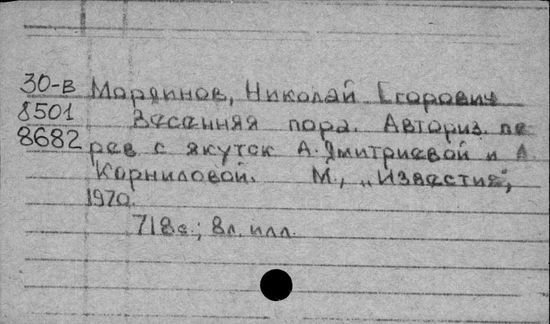 30-в Мординов, Николай Егорович
8501 Весенняя пора. Авториз. пе
8682 рев с якутск А. Дмитриевой и А.
Корниловой. М., „Известия",
1970.
718с.; 8л. илл.